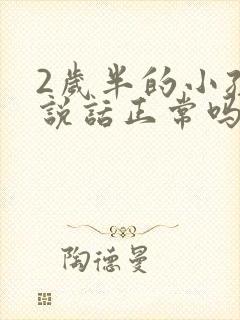 2歲半的小孩
說話正常嗎
陶德曼